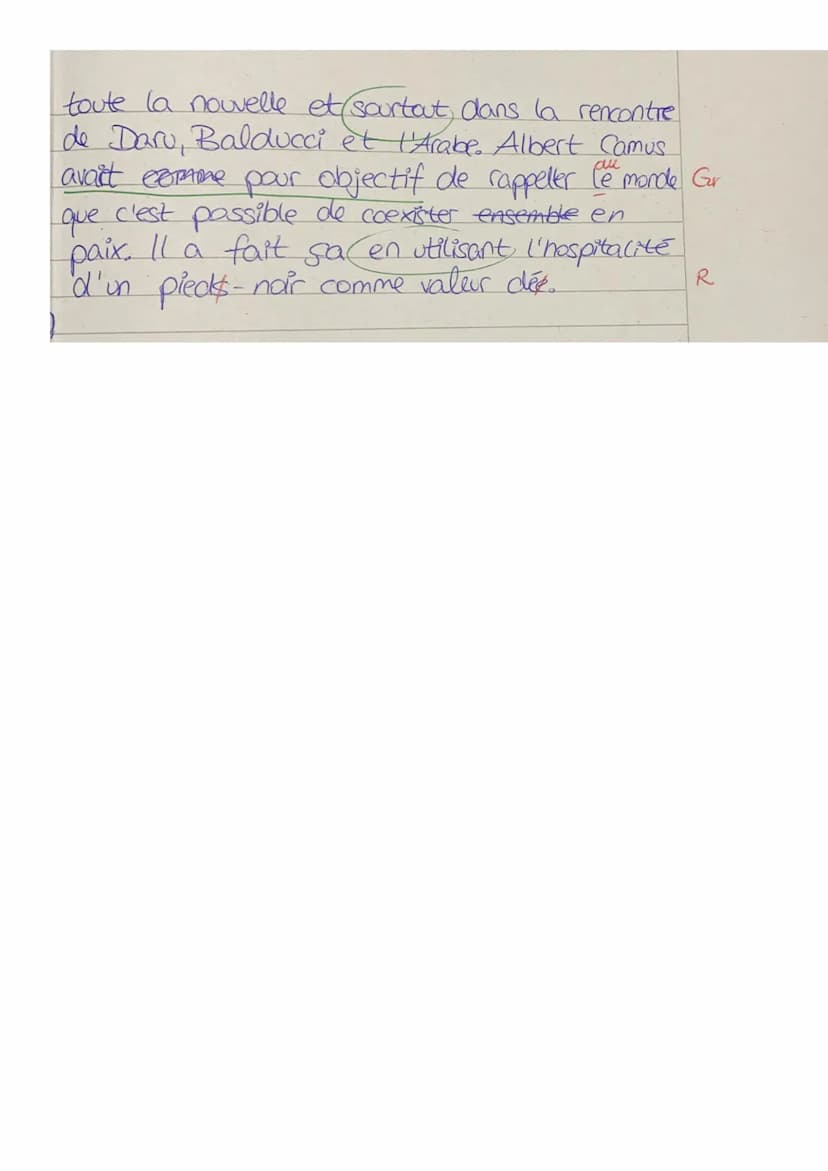 toute la nouvelle et surtout, dans la rencontre
de Daru, Balducci et l'Arabe. Albert Camus
avait comme pour objectif de rappeller le monde
au
Gr
que c'est possible de coexister ensemble en
paix. Il a fait sa en utilisant l'hospitalité
d'un pieds-noir comme valeur clée.
R